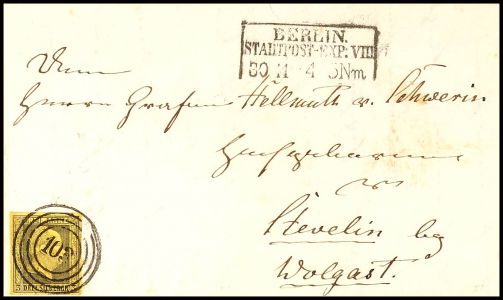 BERLIN.
STADTPOST-EXP: VIII
30 11 4 5Nm
Dem
Herrn Grafen Hellmuth v. Schwerin
Hochgeboren
Stevelin bei
Wolgast.
103